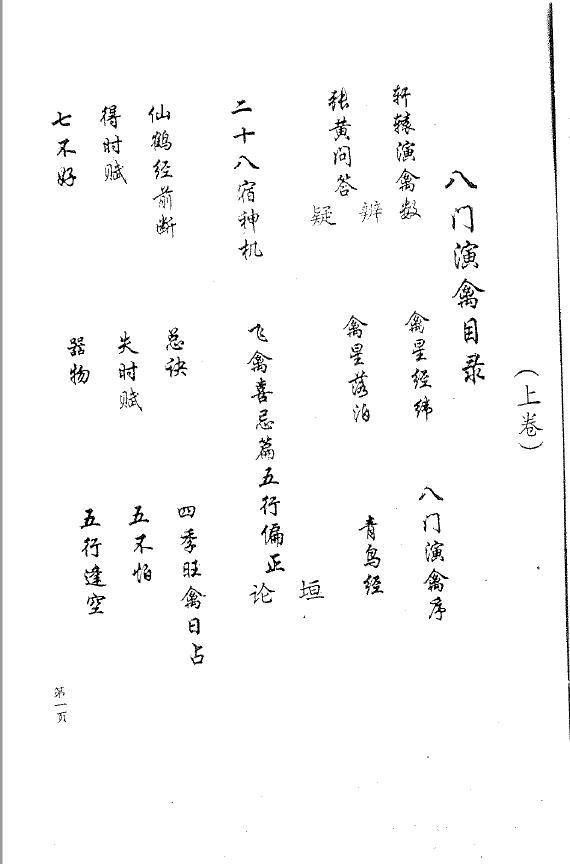 (上卷)
八门演禽目录
轩辕演禽数 禽星经纬 八门演禽序
辨
张黄问答 禽星落泊 青鸟经
疑
垣
二十八宿神机 飞禽喜忌篇 五行偏正
论
仙鹤经前断 总诀 四季旺禽日占
得时赋 失时赋 五不怕
七不好 器物 五行逢空
第一页